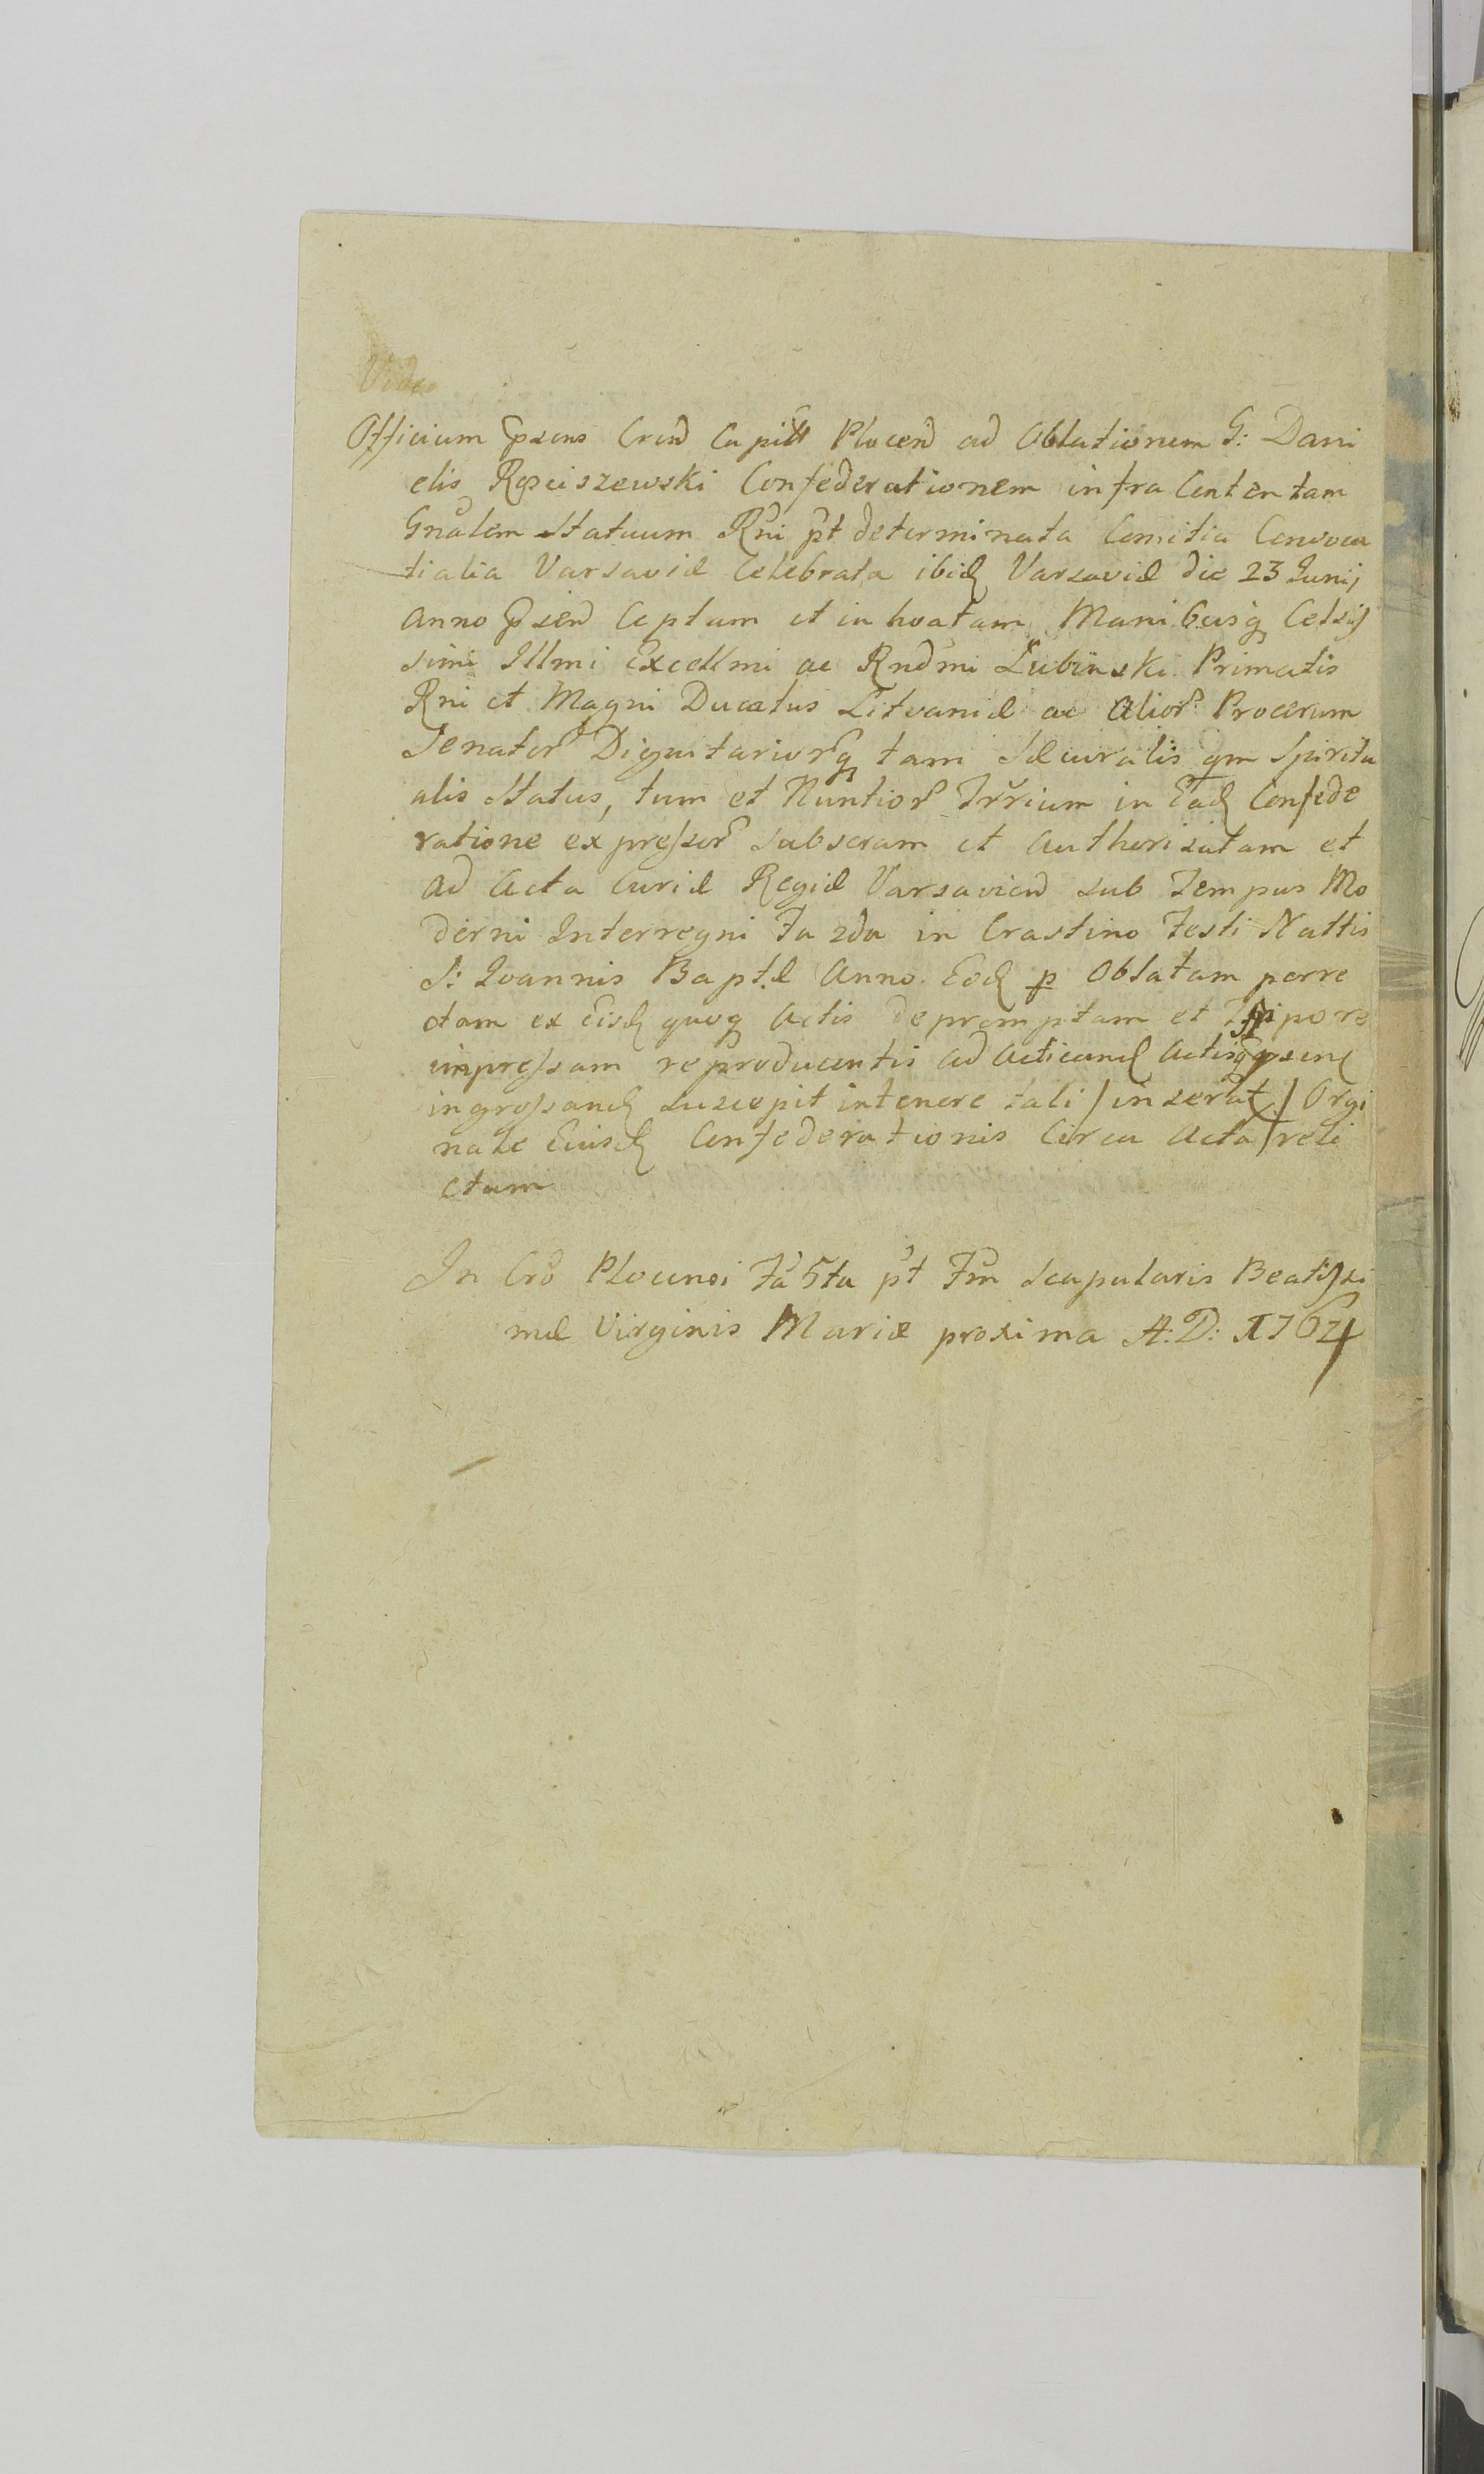 Vide
Officium p̃sens Cren̄d Capitt Plocen̄d ad Oblationem G: Dani
elis Rosciszewski Confederationem infra Contentam
Gnalem Statuum Rñi p̃t determinata Comitia Convoca
tialia Varsaviæ Celebrata ibid̨ Varsaviæ die 23 Junij
anno p̃send Captum et in hoatam Manibusq̨ Celsis
simi Illmi Excellmi ac Rndmi Łubinski Primatis
Rni et Magni Ducatus Litvaniæ ac Alior̃ Procerum
Senator̃ Dignitarior̃q̨ tam Sæcuralis qm Spiritu
alis Status, tum et Nuntior̃ Trr̃ium in Ead̨ Confede
ratione expressor̃ subscram et authorisatam et
ad Acta Curiæ Regiæ Varsaviend sub Tempus Mo
derni Interregni Fa 2da in Crastino Festi Nattis
S: Ioannis Bapt.æ Anno Eod̨ p Oblatam porre
ctam ex Eisd̨ quoq̨ Actis depromptam et Typo re
impressam reproducentis ad Acticand̨ Actisq̨ p̃send̨
ingrossand̨ suscepit in tenore tali /inserat̨/ Orgi
nale Eiusd̨ Confederationis Circa Acta /reli
ctum
In Cr̃o Plocensi Fa 5ta p̃t Fm̃ Scapularis Beatissi
mæ Virginis Mariæ proxima A: D: 1764